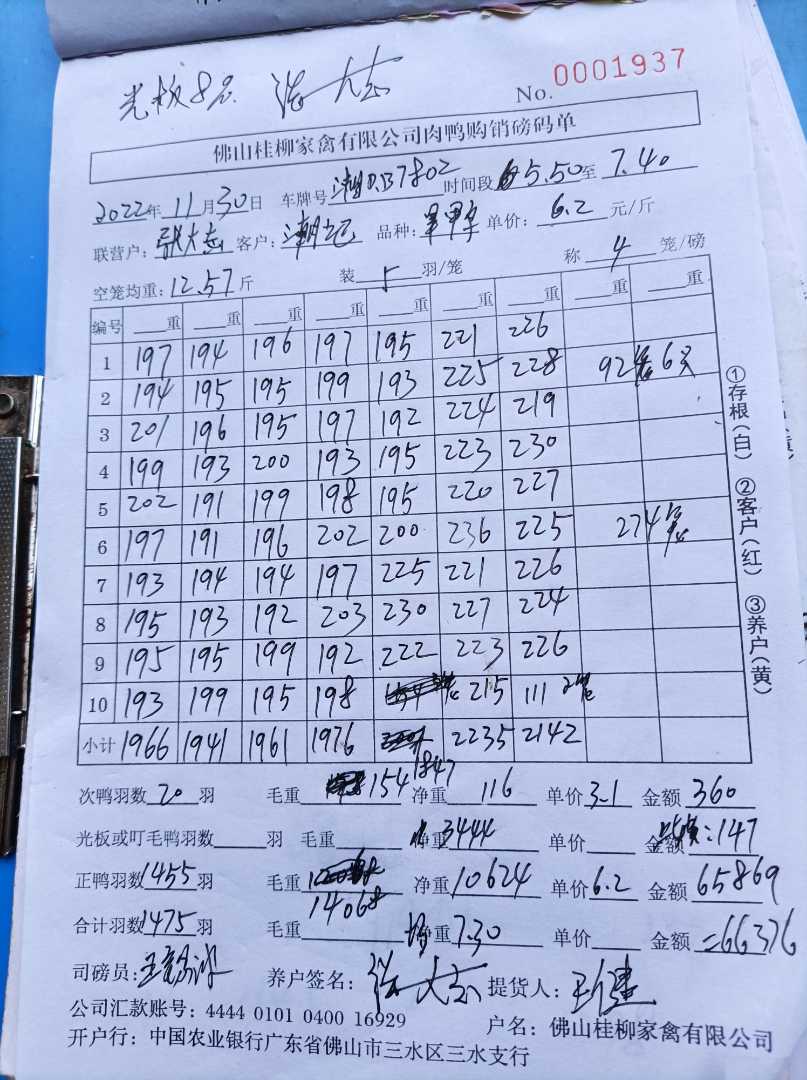 光板8名 张大志
No. 0001937
佛山桂柳家禽有限公司肉鸭购销磅码单
2022年11月30日 车牌号 时间段 5.50至7.40
联营户:张大志 客户:潮记 品种: 单价:6.2元/斤
空笼均重:12.57斤 装5羽/笼 称4笼/磅
编号 重 重 重 重 重 重 重 重 重
1 197 194 196 197 195 221 226
2 194 195 195 199 193 225 228 92笼6只
3 201 196 195 197 192 224 219
4 199 193 200 193 195 223 230
5 202 191 199 198 195 220 227
6 197 191 196 202 200 236 225 274笼
7 193 194 194 197 225 221 226
8 195 193 192 203 230 227 224
9 195 195 199 192 222 223 226
10 193 199 195 198 215 111 2笼
小计 1966 1941 1961 1976 1847 2235 2142
次鸭羽数20羽 毛重154 净重116 单价3.1 金额360
光板或叮毛鸭羽数 羽 毛重 净重3444 单价 金额:147
正鸭羽数1455羽 毛重14068 净重10624 单价6.2 金额65869
合计羽数1475羽 毛重 均净重7.30 单价 金额=66376
司磅员: 养户签名:张大志 提货人:王健
公司汇款账号:4444 0101 0400 16929 户名:佛山桂柳家禽有限公司
开户行:中国农业银行广东省佛山市三水区三水支行
①存根(白) ②客户(红) ③养户(黄)